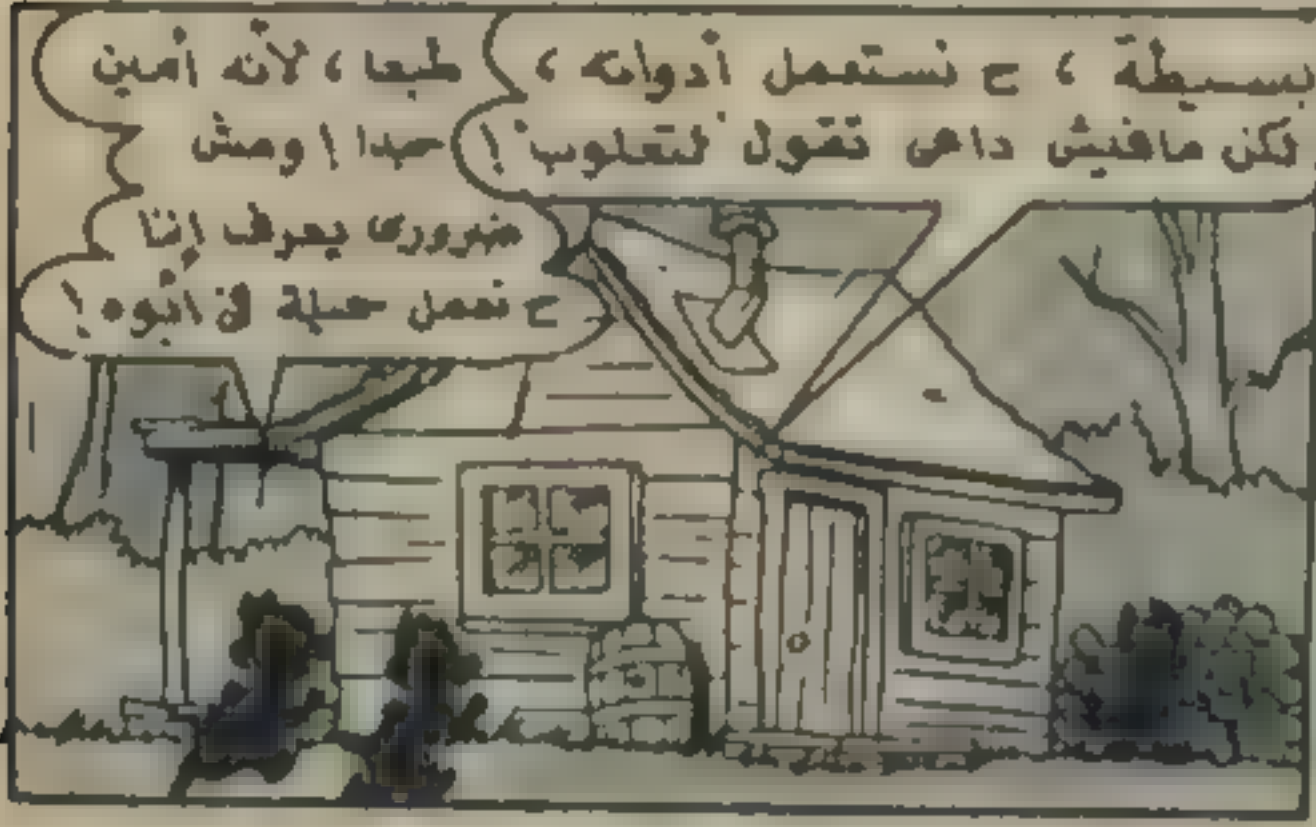 بسيطة ، ح نستعمل أدواته ،
لكن مافيش داعى تقول لتعلوب !
طبعا ، لأنه أمين
جدا ! ومش
ضرورى يعرف إننا
ح نعمل حيلة فى أبوه !